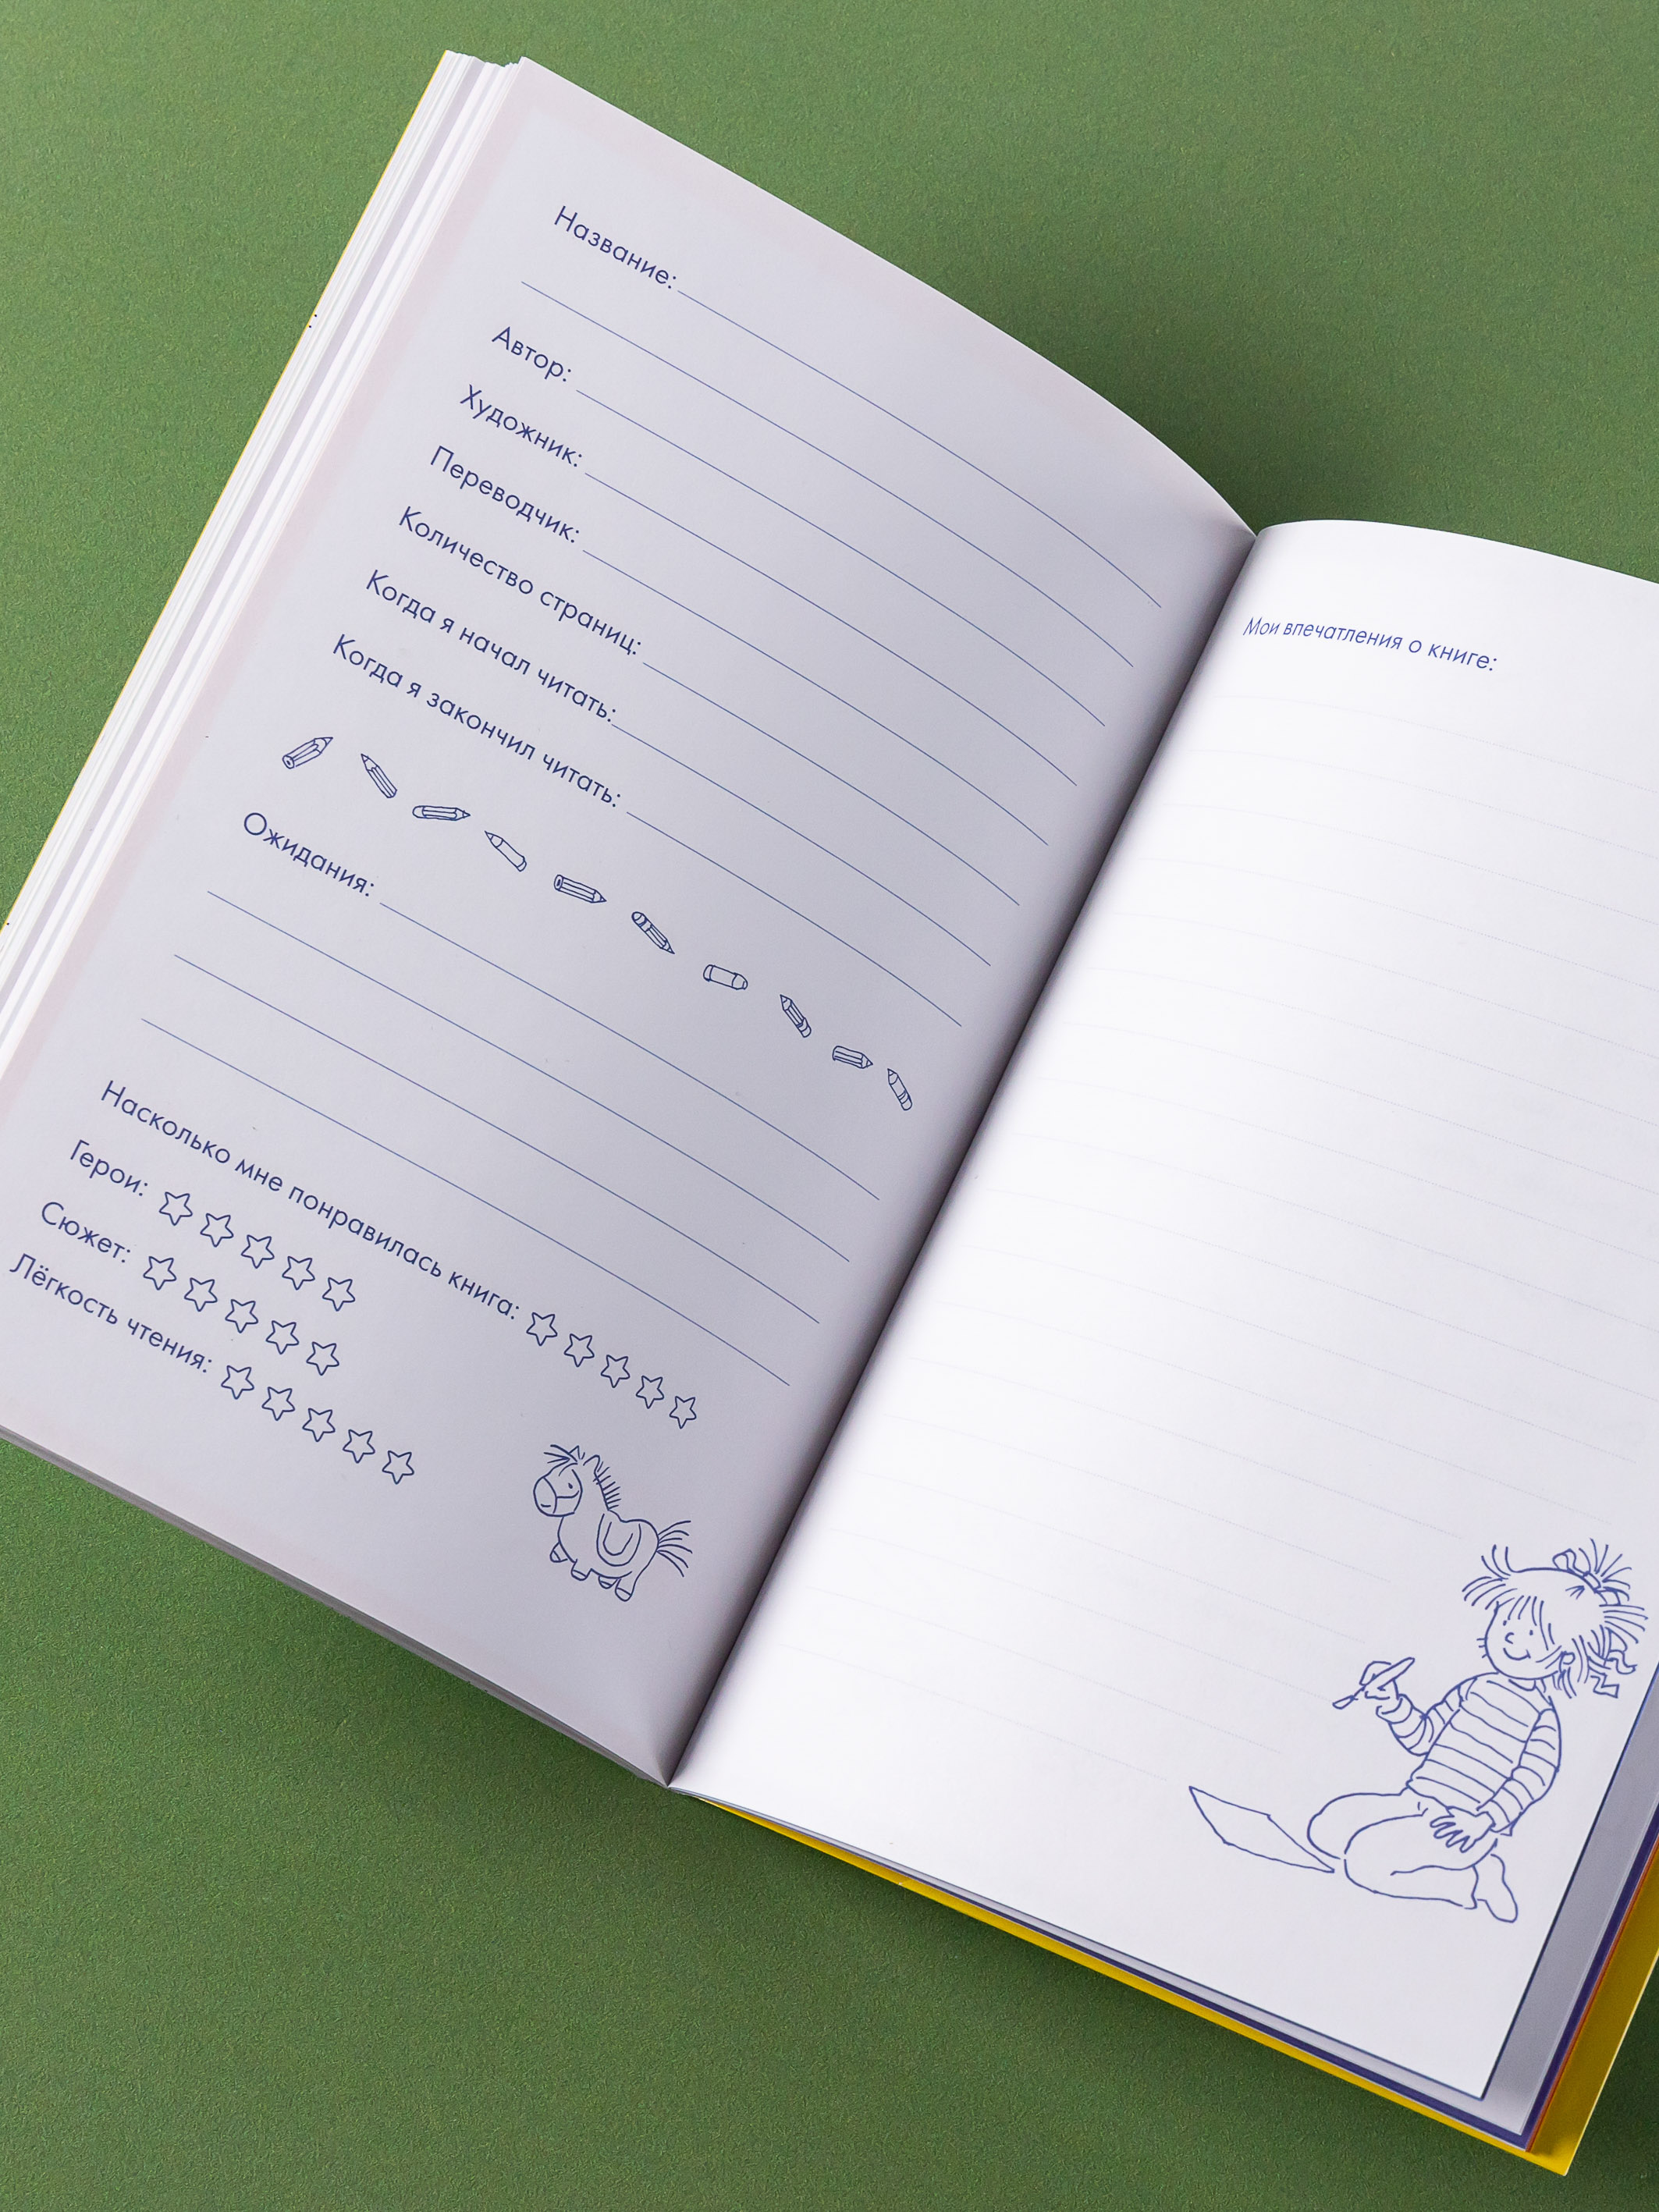 Название:
Автор:
Художник:
Переводчик:
Количество страниц:
Когда я начал читать:
Когда я закончил читать:
Ожидания:
Насколько мне понравилась книга:
Герои:
Сюжет:
Лёгкость чтения:
Мои впечатления о книге: